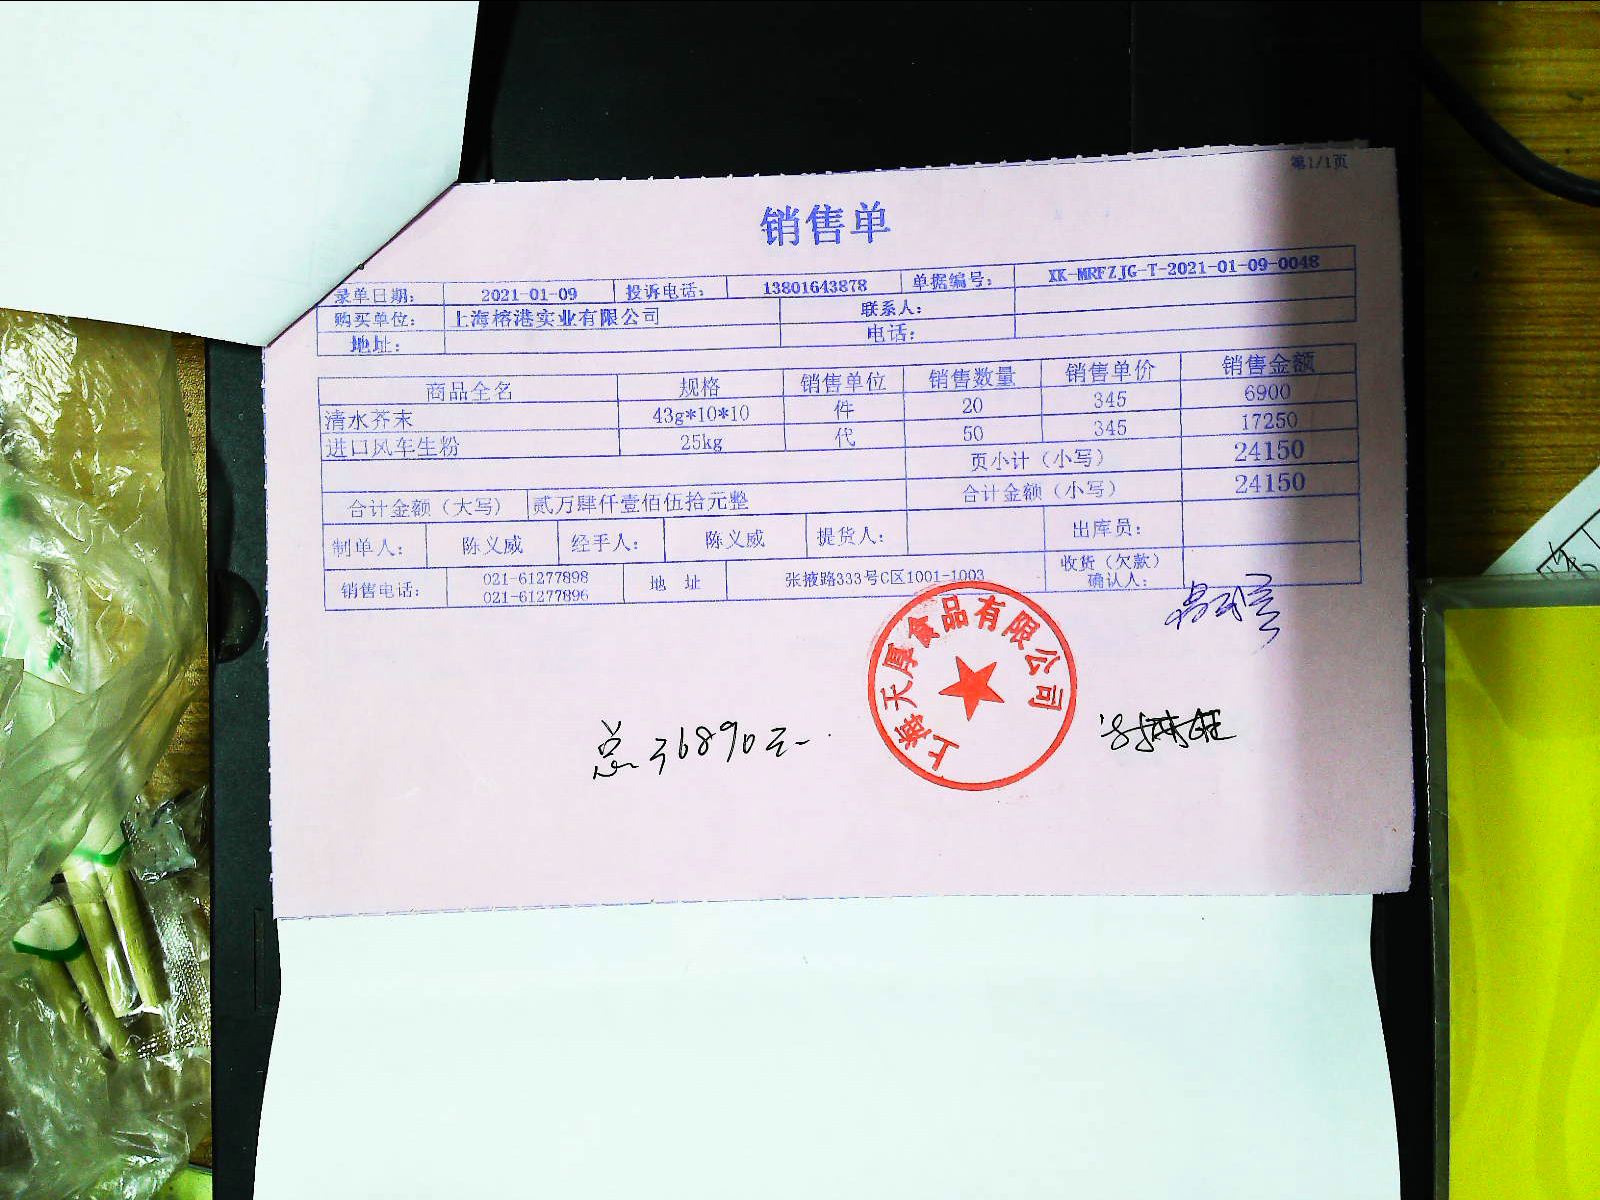 第1/1页
销售单
录单日期： 2021-01-09 投诉电话： 13801643878 单据编号： XK-MRFZJG-T-2021-01-09-0048
购买单位： 上海榕港实业有限公司 联系人：
地址： 电话：
商品全名 规格 销售单位 销售数量 销售单价 销售金额
清水芥末 43g*10*10 件 20 345 6900
进口风车生粉 25kg 代 50 345 17250
页小计（小写） 24150
合计金额（大写） 贰万肆仟壹佰伍拾元整 合计金额（小写） 24150
制单人： 陈义威 经手人： 陈义威 提货人： 出库员：
销售电话： 021-61277898 021-61277896 地 址 张掖路333号C区1001-1003 收货（欠款）确认人：
上海天厚食品有限公司